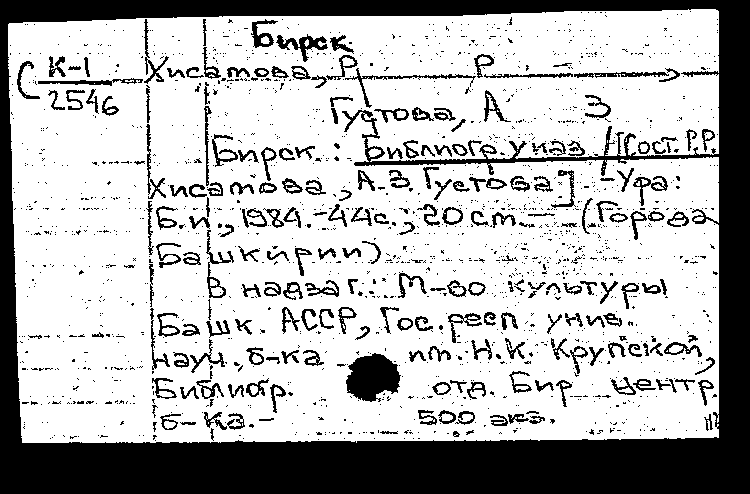 Бирск
К-1 Хисатова, Р Р
2546
Густова, А З
Бирск: Библиогр. указ / [Сост. Р.Р.
Хисатова, А.З. Густова]. - Уфа:
Б.и., 1984.-44с.; 20 см. — (Города
Башкирии)
В надзаг.: М-во культуры
Башк. АССР, Гос. респ. унив.
науч. б-ка им. Н.К. Крупской,
Библиогр. отд. Бир центр
б-ка. - 500 экз.